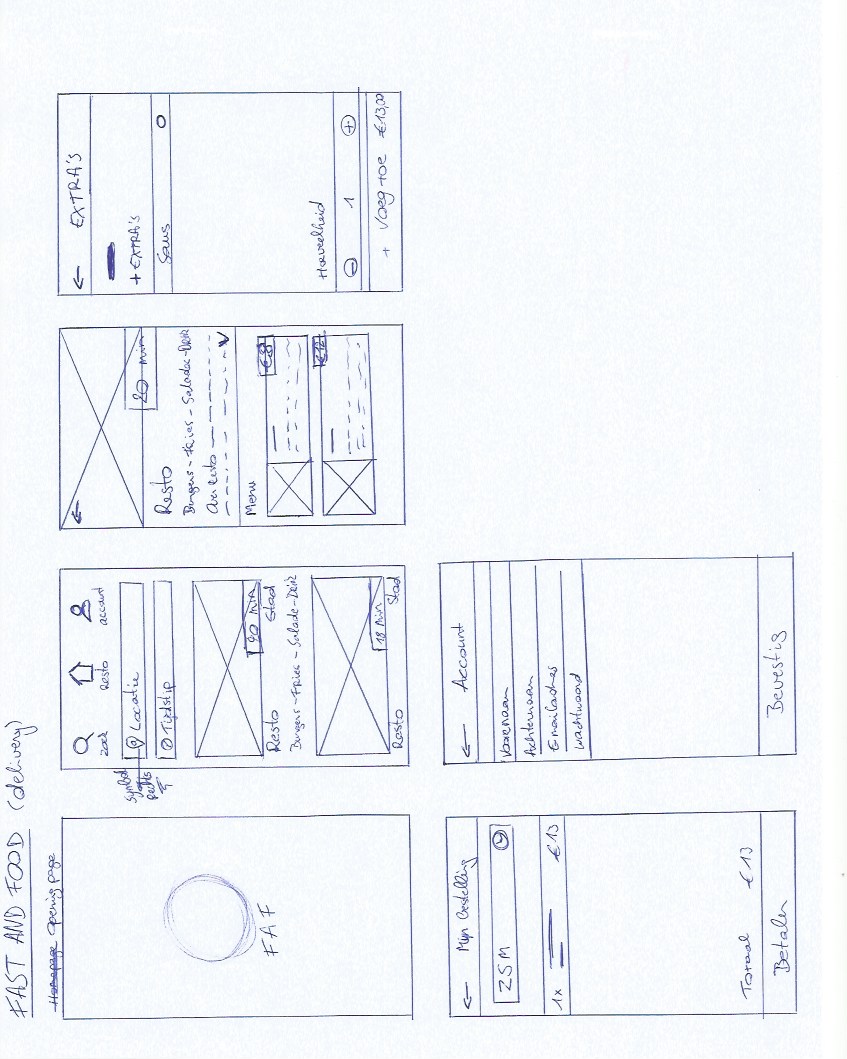 FAST AND FOOD (delivery)
Homepage Opening page
FAF
Zoek
Resto
account
Symbol rechts
Locatie
Tijdstip
20 min
Resto
Stad
Burgers - Fries - Salade - Drink
18 min
Resto
Stad
←
20 min
Resto
Burgers - Fries - Salade - Drink
Menu
← EXTRA'S
+ EXTRA'S
Saus
Hoeveelheid
- 1 +
+ Voeg toe €13,00
← Mijn bestelling
ZSM
1x
€13
Totaal €13
Betalen
← Account
Voornaam
Achternaam
Emailadres
Wachtwoord
Bevestig